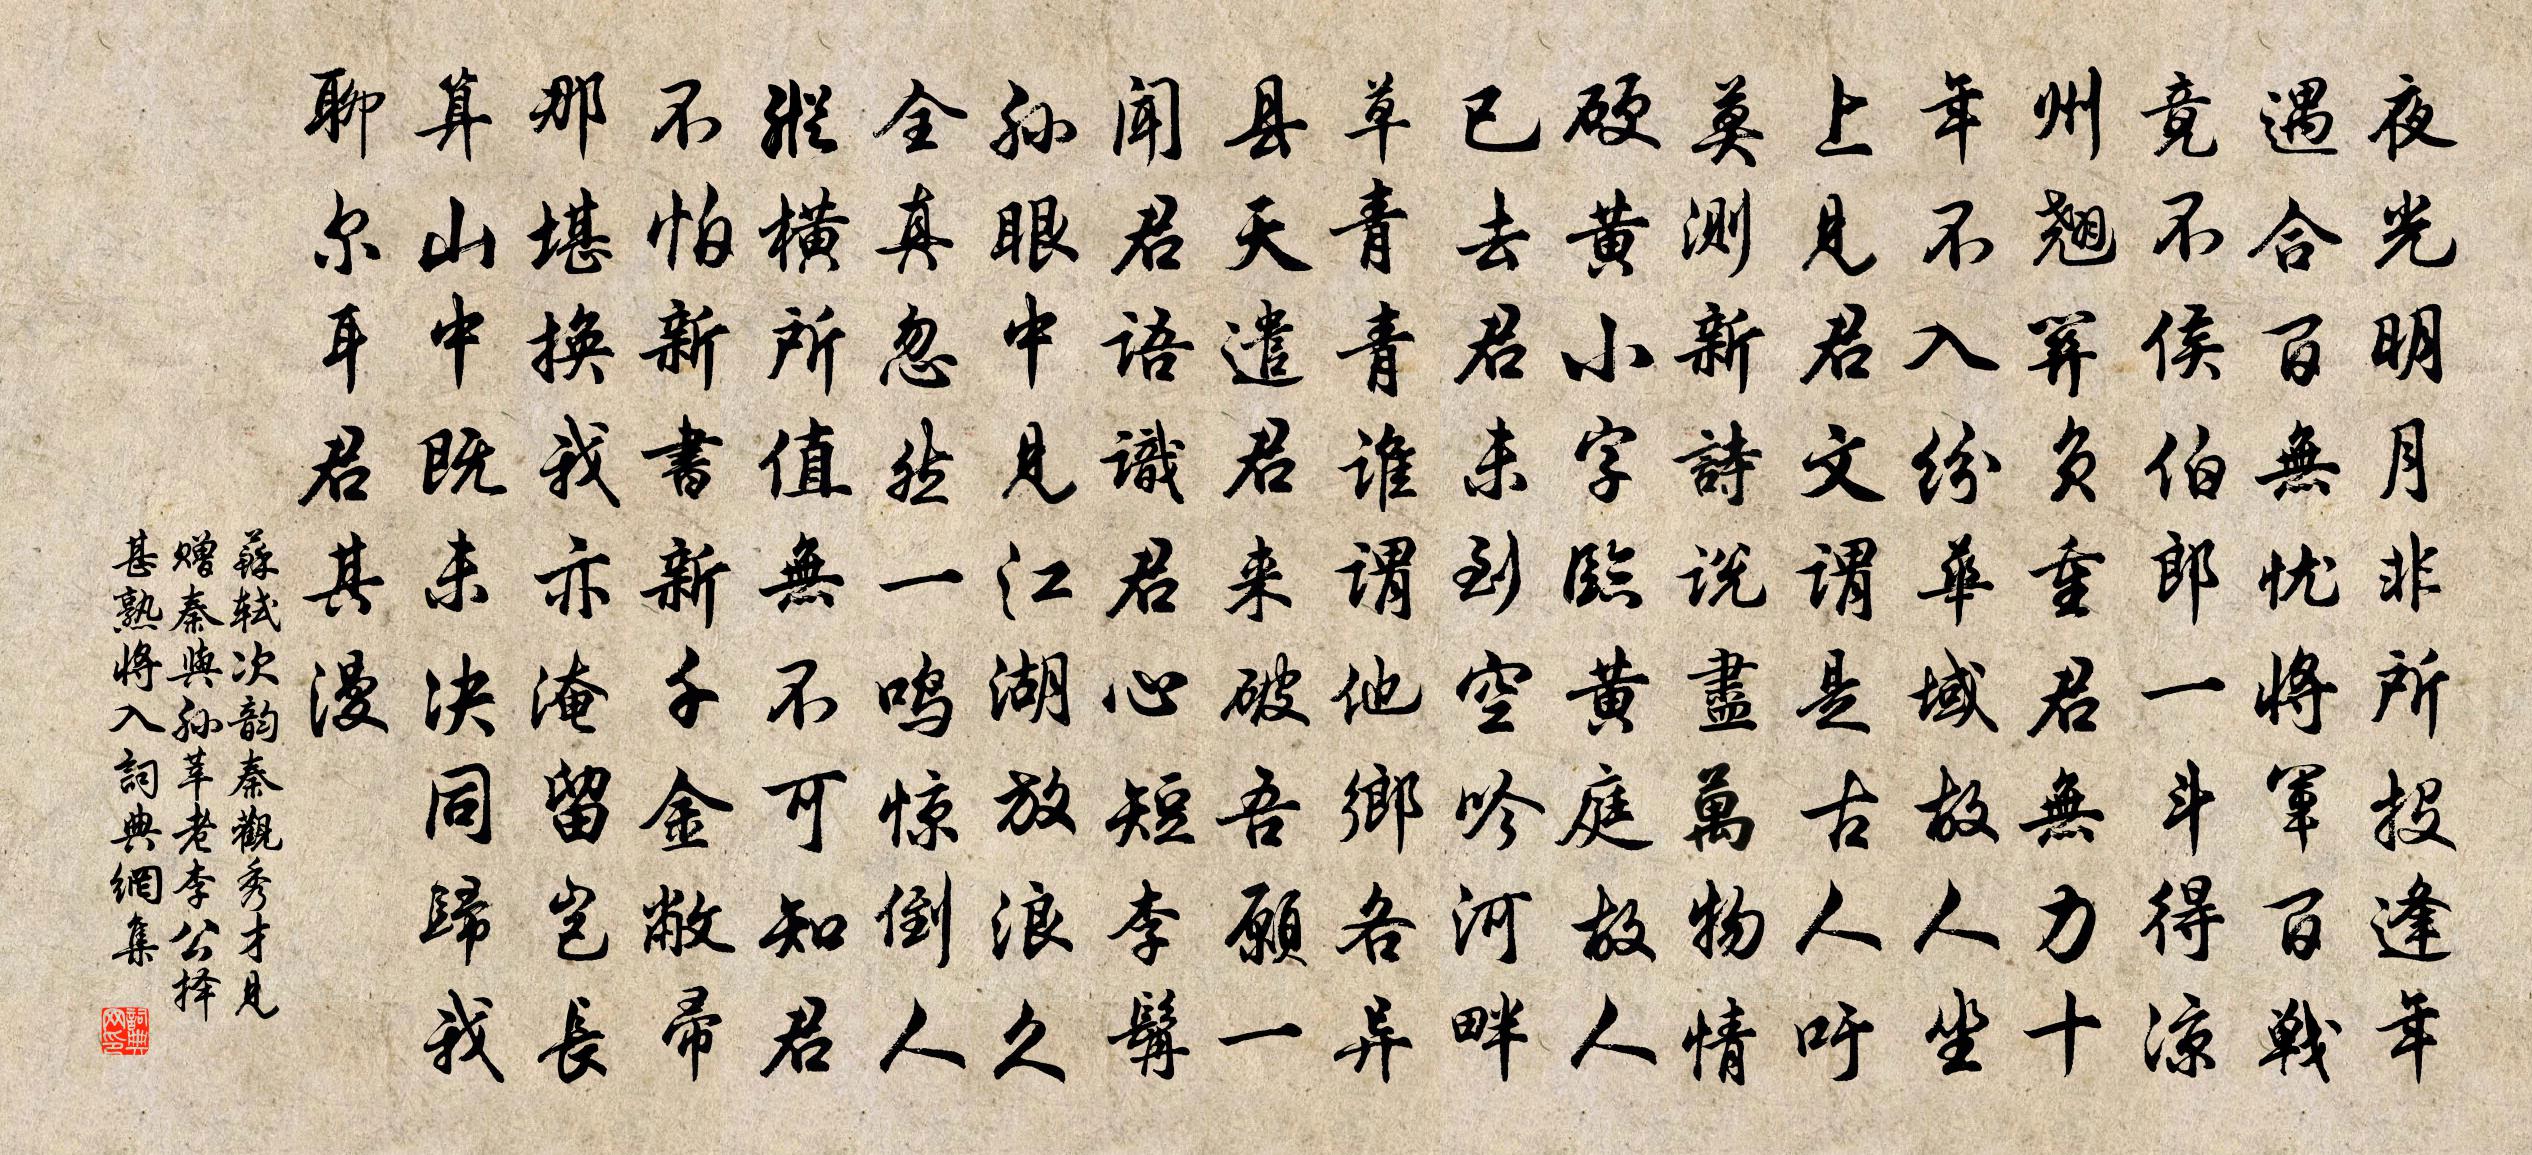 夜光明月非所投逢年
遇合百無忧將軍百戦
竟不侯伯郎一斗得涼
州翘関负重君無力十
年不入纷華域故人坐
上見君文謂是古人吁
莫测新詩説盡萬物情
硬黄小字臨黄庭故人
已去君未到空吟河畔
草青青誰謂他鄉各异
县天遣君来破吾願一
聞君語識君心短李髯
孙眼中見江湖放浪久
全真忽然一鸣惊倒人
縱横所值無不可知君
不怕新書新千金敝帚
那堪换我亦淹留豈長
算山中既未决同歸我
聊尔耳君其漫
蘇轼次韵秦觀秀才見
赠秦與孙莘老李公择
甚熟將入詞典網集
詞典网印